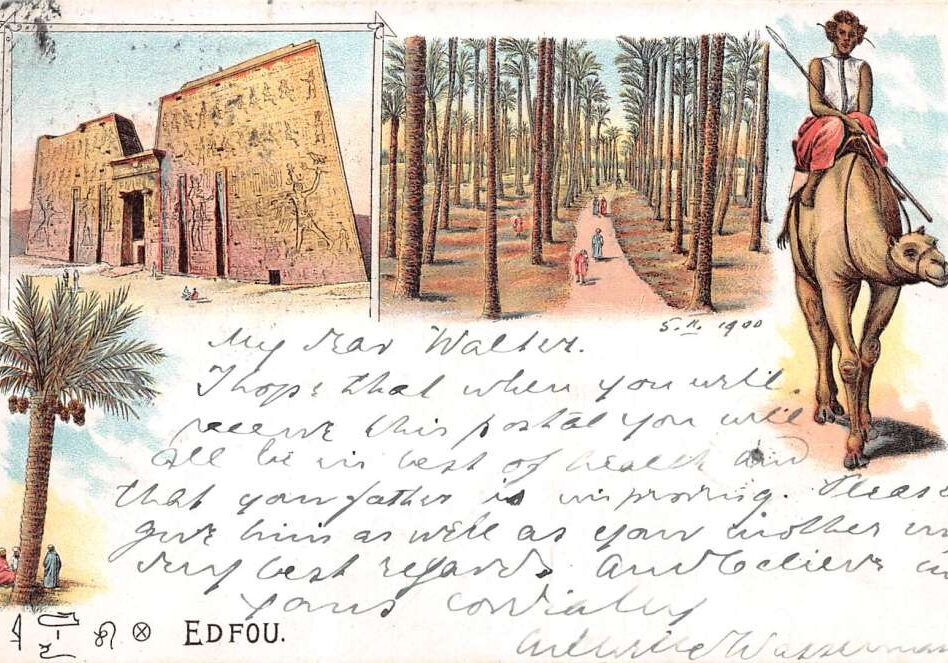 5. II. 1900
My dear Walter.
I hope that when you will
receive this postal you will
all be in best of health and
that your father is improving. Pleas
give him as well as your mother m
very best regards. And believe m
yours cordially
Wasserman
EDFOU.